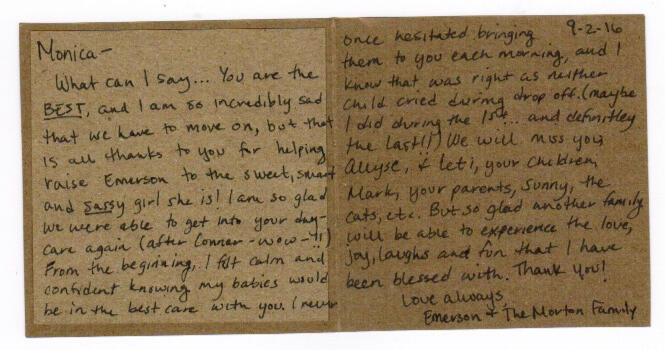 Monica-
What can I say... You are the
BEST, and I am so incredibly sad
that we have to move on, but that
is all thanks to you for helping
raise Emerson to the sweet, smart
and sassy girl she is! I am so glad
we were able to get into your day-
care again (after Connor-wow-!!)
From the beginning, I felt calm and
confident knowing my babies would
be in the best care with you. I never
9-2-16
once hesitated bringing
them to you each morning, and I
know that was right as neither
child cried during drop off. (maybe
I did during the 1st... and definitley
the last!!) We will miss you
Allyse, & Leti, your children,
Mark, your parents, Sunny, the
cats, etc. But so glad another family
will be able to experience the love,
joy, laughs and fun that I have
been blessed with. Thank you!
Love always,
Emerson + The Morton Family